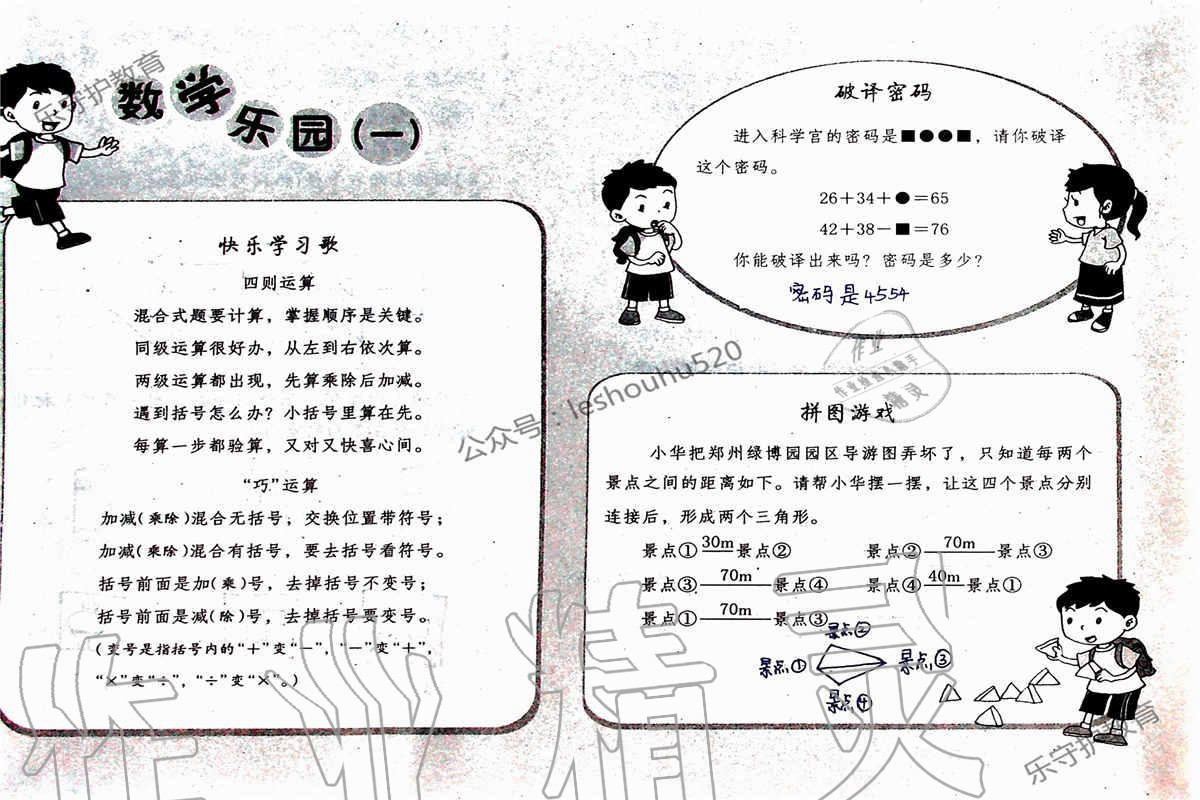 数学乐园(一)
快乐学习歌
四则运算
混合式题要计算，掌握顺序是关键。
同级运算很好办，从左到右依次算。
两级运算都出现，先算乘除后加减。
遇到括号怎么办？小括号里算在先。
每算一步都验算，又对又快喜心间。
“巧”运算
加减(乘除)混合无括号，交换位置带符号；
加减(乘除)混合有括号，要去括号看符号。
括号前面是加(乘)号，去掉括号不变号；
括号前面是减(除)号，去掉括号要变号。
(变号是指括号内的“+”变“－”，“－”变“+”，
“×”变“÷”，“÷”变“×”。)
破译密码
进入科学宫的密码是■●●■，请你破译
这个密码。
26+34+●=65
42+38-■=76
你能破译出来吗？密码是多少？
密码是4554
拼图游戏
小华把郑州绿博园园区导游图弄坏了，只知道每两个
景点之间的距离如下。请帮小华摆一摆，让这四个景点分别
连接后，形成两个三角形。
景点① 30m 景点② 景点② 70m 景点③
景点③ 70m 景点④ 景点④ 40m 景点①
景点① 70m 景点③
景点②
景点① 景点③
景点④
乐守护教育
公众号：leshouhu520
作业
作业检查小助手
精灵
作业精灵
乐守护教育